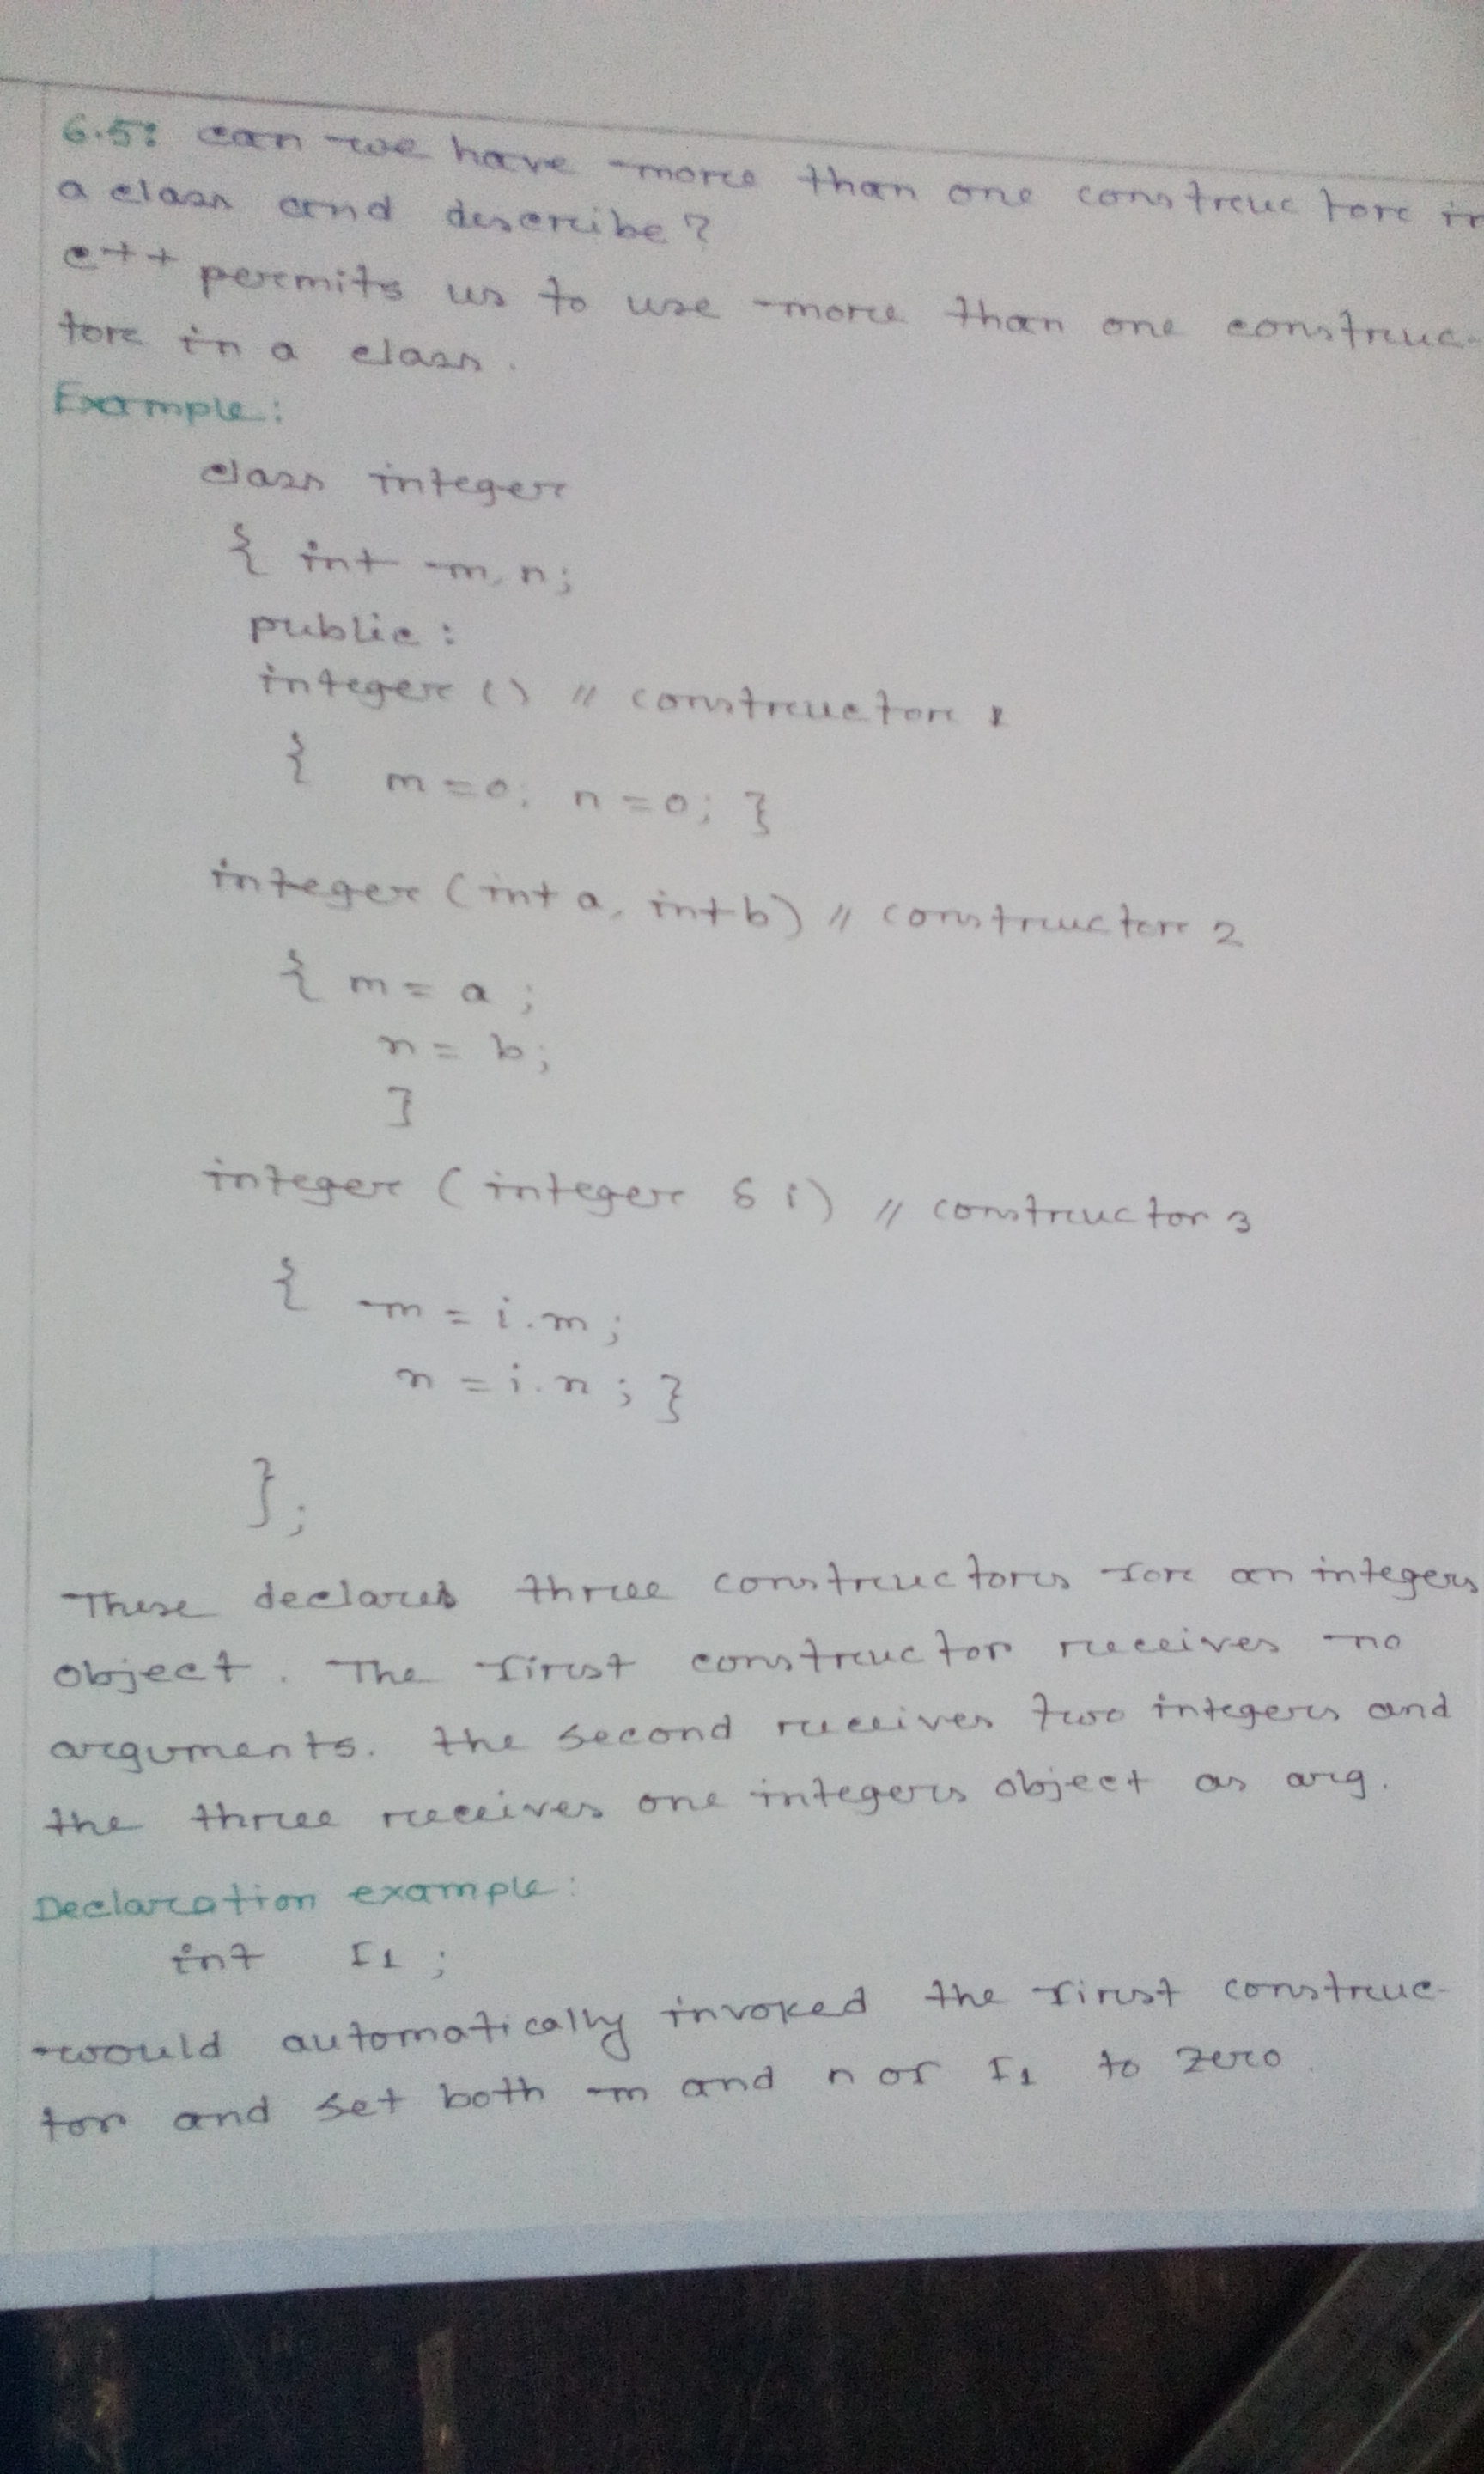 6.5: can we have more than one constructor in
a class and describe?
c++ permits us to use more than one construc-
tor in a class.
Example:
class integer
{ int m, n;
public:
integer () // constructor 1
{ m=0; n=0; }
integer (int a, int b) // constructor 2
{ m= a;
n= b;
}
integer (integer & i) // constructor 3
{ m = i.m;
n = i.n; }
};
These declares three constructors for an integers
object. The first constructor receives no
arguments. the second receives two integers and
the three receives one integers object as arg.
Declaration example:
int I1;
would automatically invoked the first construc-
tor and set both m and n of I1 to zero.